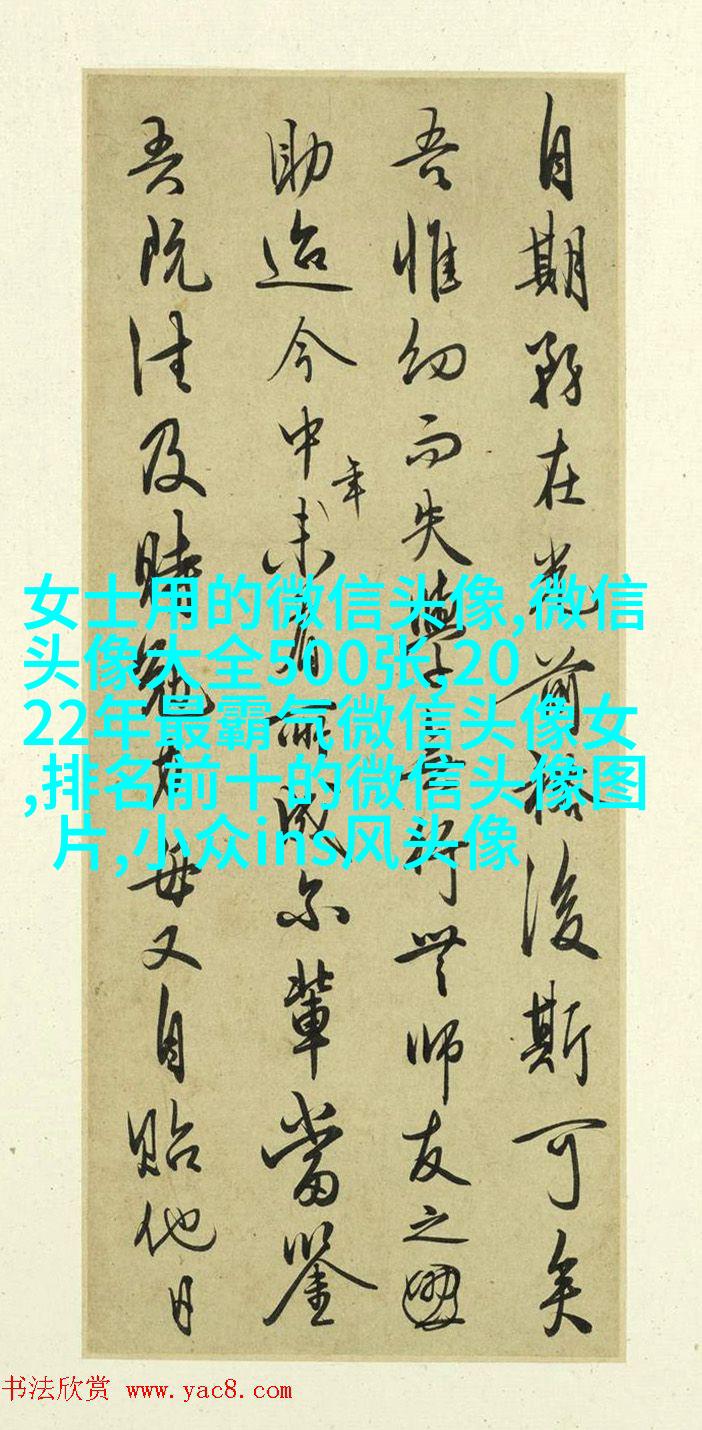 自期務在光前裕後斯可矣
吾惟幼而失學無行無師友之
助迨今中年未有所成尔輩當鑒
吾既往及時勉之毋又自貽他日
女士用的微信头像,微信
头像大全500张,20
22年最霸气微信头像女
,排名前十的微信头像图
片,小众ins风头像
书法欣赏 www.yac8.com